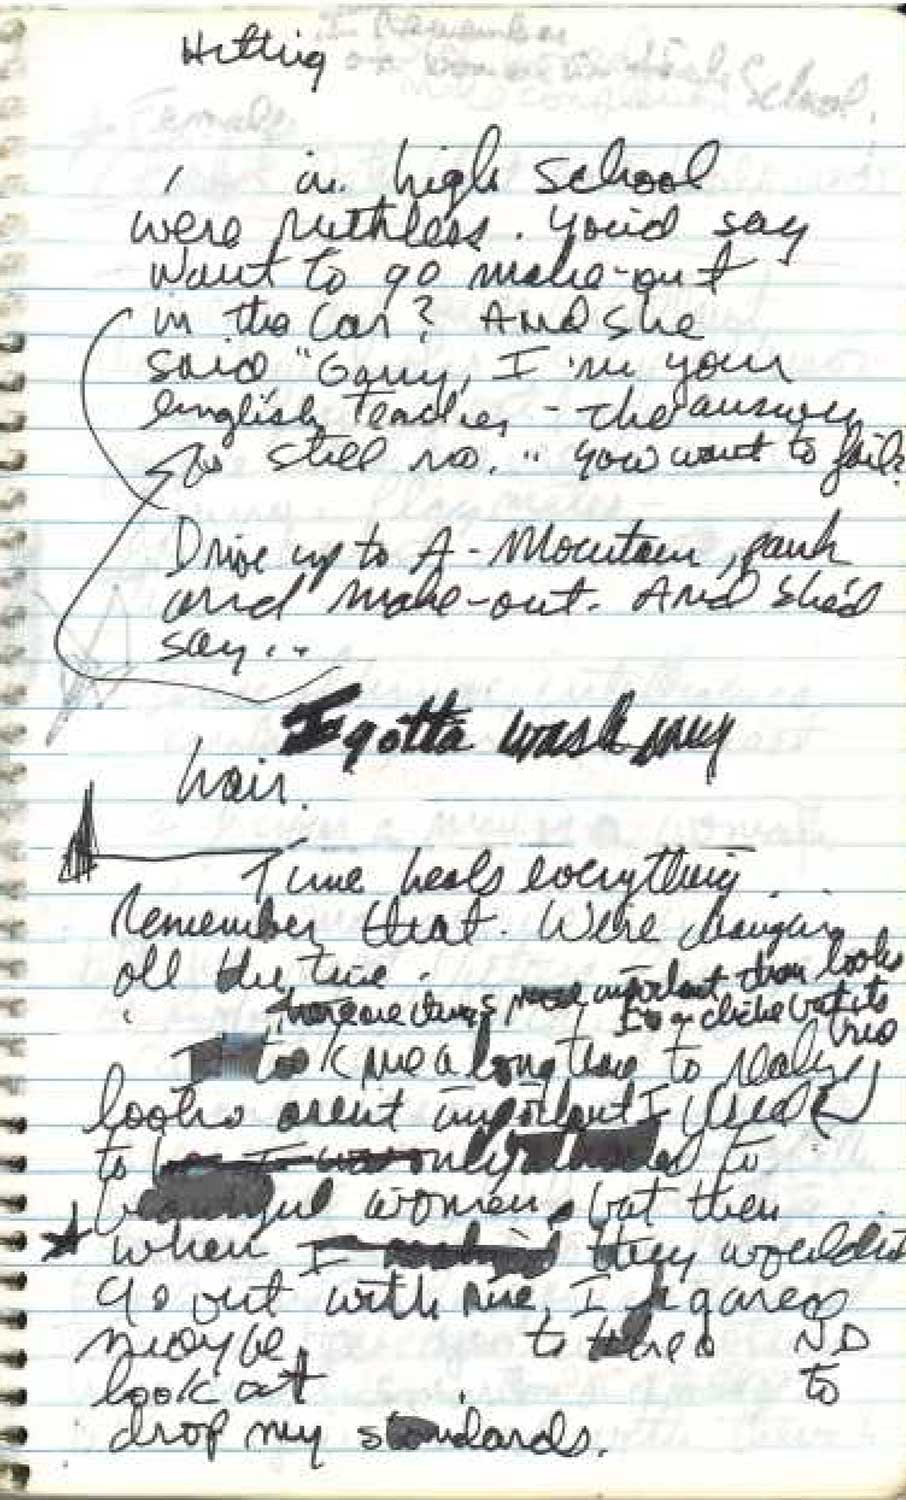 Hitting
in high school
were ruthless. You'd say
Want to go make-out
in the car? And she
said "Garry, I'm your
english teacher, - the answer
is still no." You want to fail?
Drive up to A-Mountain, park
and make-out. And she'd
say...
I gotta wash my
hair.
Time heals everything
Remember that. We're changing
all the time.
There are things more important than looks
It's a cliche but its
true
took me a long time to realize
looks arent important I used
to only to
beautiful women, but then
when I they wouldn't
go out with me, I figured
maybe to
look at to
drop my standards.